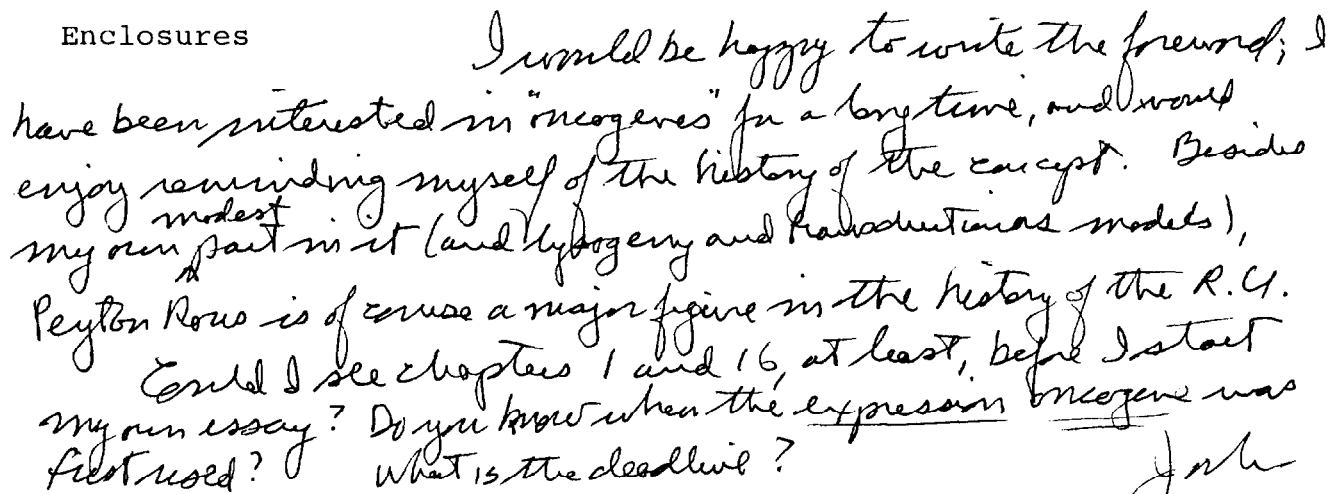 Enclosures
I would be happy to write the foreword; I
have been interested in "oncogenes" for a long time, and would
enjoy reminding myself of the history of the concept. Besides
modest
my own part in it (and lysogeny and transduction as models),
Peyton Rous is of course a major figure in the history of the R.U.
Could I see chapters 1 and 16, at least, before I start
my own essay? Do you know when the expression oncogene was
first used? What is the deadline?
Josh